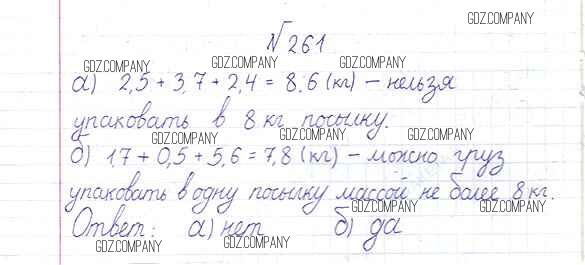 GDZ.COMPANY
№261
GDZ.COMPANY GDZ.COMPANY GDZ.COMPANY
а) 2,5 + 3,7 + 2,4 = 8,6 (кг) – нельзя
упаковать в 8 кг посылку.
GDZ.COMPANY GDZ.COMPANY GDZ.COMPANY
б) 1,7 + 0,5 + 5,6 = 7,8 (кг) – можно груз
упаковать в одну посылку массой не более 8 кг.
GDZ.COMPANY GDZ.COMPANY
Ответ: а) нет б) да
GDZ.COMPANY GDZ.COMPANY